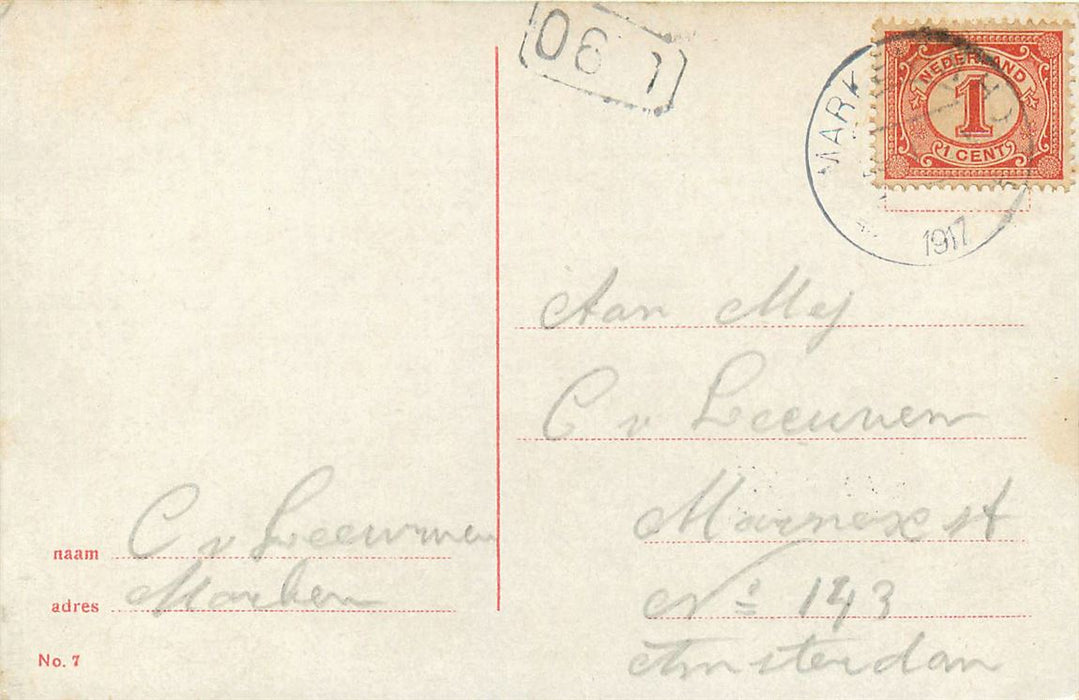 1 30
MARK
1917
NEDERLAND
1
1 CENT
Aan Mej
C v Leeuwen
Marnexst
No 143
Amsterdan
naam C v Leeuwen
adres Marken
No. 7